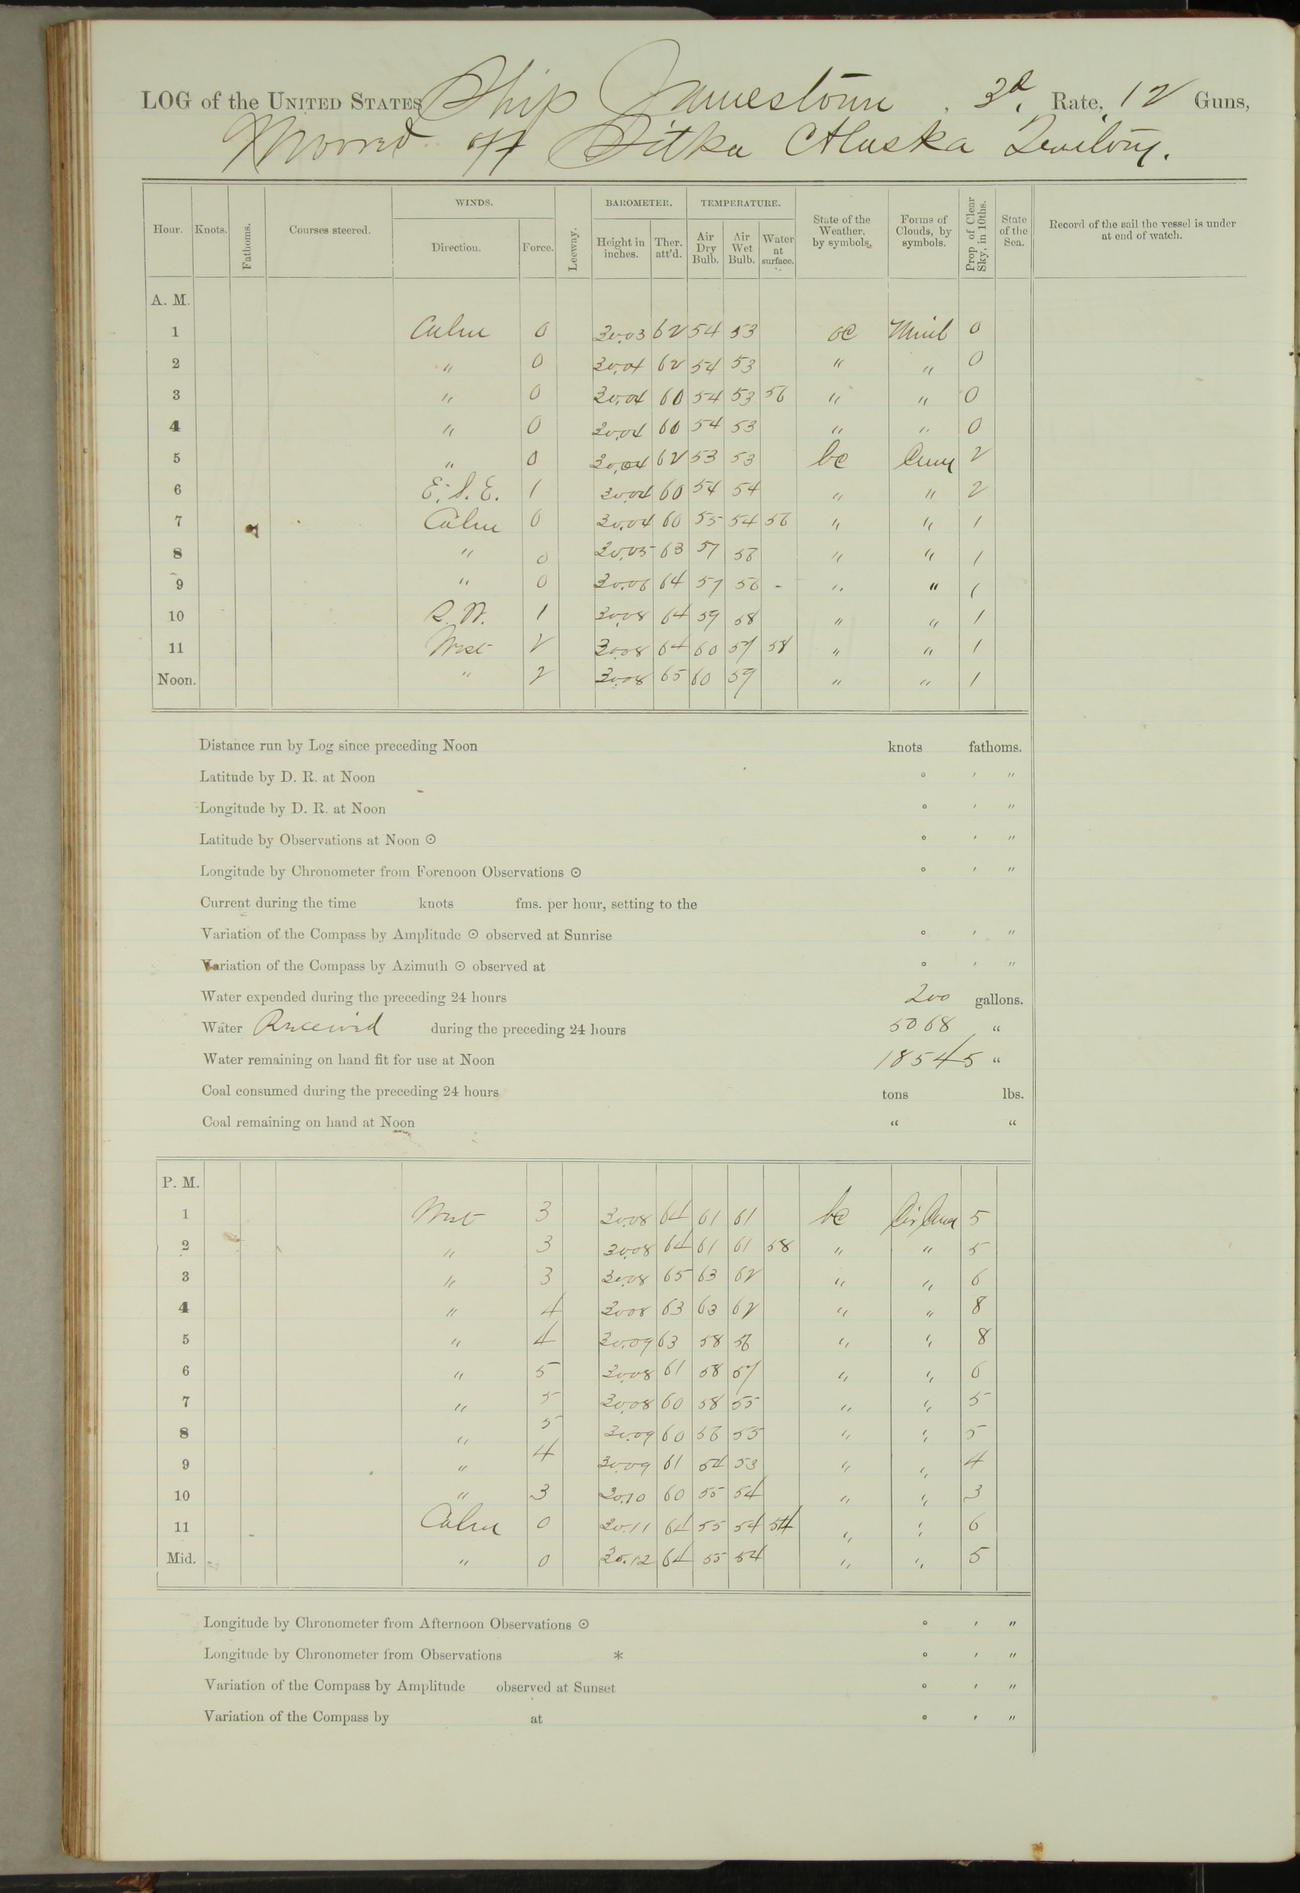 LOG of the UNITED STATES Ship Jamestown, 3d. Rate, 12 Guns,
Moored off Sitka Alaska Territory.
Hour. Knots. Fathoms. Courses steered. WINDS. Direction. Force. Leeway. BAROMETER. Height in inches. Ther. att'd. TEMPERATURE. Air Dry Bulb. Air Wet Bulb. Water at surface. State of the Weather, by symbols. Forms of Clouds, by symbols. Prop. of Clear Sky, in 10ths. State of the Sea. Record of the sail the vessel is under at end of watch.
A. M.
1 Calm 0 30.03 62 54 53 oc Nimb 0
2 " 0 30.04 62 54 53 " " 0
3 " 0 30.04 60 54 53 56 " " 0
4 " 0 30.04 60 54 53 " " 0
5 " 0 30.04 62 53 53 bc Cum 2
6 E. S. E. 1 30.04 60 54 54 " " 2
7 Calm 0 30.04 60 55 54 56 " " 1
8 " 0 30.05 63 57 56 " " 1
9 " 0 30.06 64 57 56 - " " 1
10 S. W. 1 30.08 64 59 58 " " 1
11 West 2 30.08 64 60 59 58 " " 1
Noon. " 2 30.08 65 60 59 " " 1
Distance run by Log since preceding Noon knots fathoms.
Latitude by D. R. at Noon ° ' "
Longitude by D. R. at Noon ° ' "
Latitude by Observations at Noon ☉ ° ' "
Longitude by Chronometer from Forenoon Observations ☉ ° ' "
Current during the time knots fms. per hour, setting to the
Variation of the Compass by Amplitude ☉ observed at Sunrise ° ' "
Variation of the Compass by Azimuth ☉ observed at ° ' "
Water expended during the preceding 24 hours 200 gallons.
Water Received during the preceding 24 hours 5068 "
Water remaining on hand fit for use at Noon 18545 "
Coal consumed during the preceding 24 hours tons lbs.
Coal remaining on hand at Noon " "
P. M.
1 West 3 30.08 64 61 61 bc Cir Cum 5
2 " 3 30.08 64 61 61 58 " " 5
3 " 3 30.08 65 63 62 " " 6
4 " 4 30.08 63 63 62 " " 8
5 " 4 30.09 63 58 56 " " 8
6 " 5 30.08 61 58 57 " " 6
7 " 5 30.08 60 58 55 " " 5
8 " 5 30.09 60 56 55 " " 5
9 " 4 30.09 61 54 53 " " 4
10 " 3 30.10 60 55 54 " " 3
11 Calm 0 30.11 64 55 54 54 " " 6
Mid. " 0 30.12 64 55 54 " " 5
Longitude by Chronometer from Afternoon Observations ☉ ° ' "
Longitude by Chronometer from Observations * ° ' "
Variation of the Compass by Amplitude observed at Sunset ° ' "
Variation of the Compass by at ° ' "